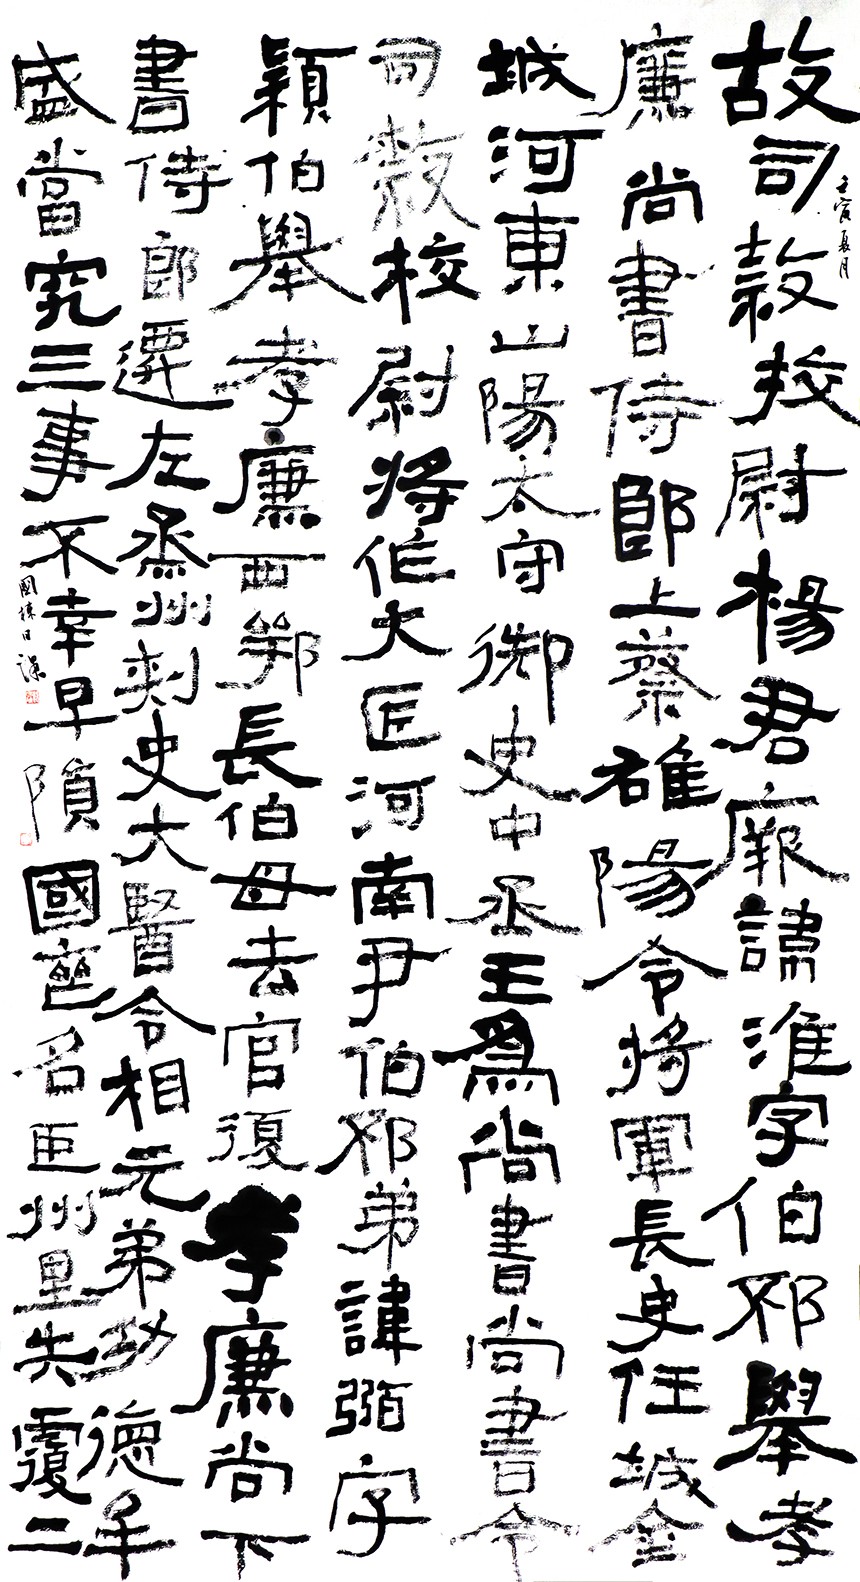 壬寅夏月
故司隸校尉楊君厥諱淮字伯邳舉孝
廉尚書侍郎上蔡雒陽令將軍長史任城金
城河東山陽太守御史中丞王為尚書尚書令
司隸校尉將作大匠河南尹伯邳弟諱弼字
穎伯舉孝廉西鄂長伯母去官復孝廉尚下
書侍郎遷左丞州刺史大醫令相元弟功德牟
盛當究三事不幸早隕國喪名臣州里失覆二
國棟日課